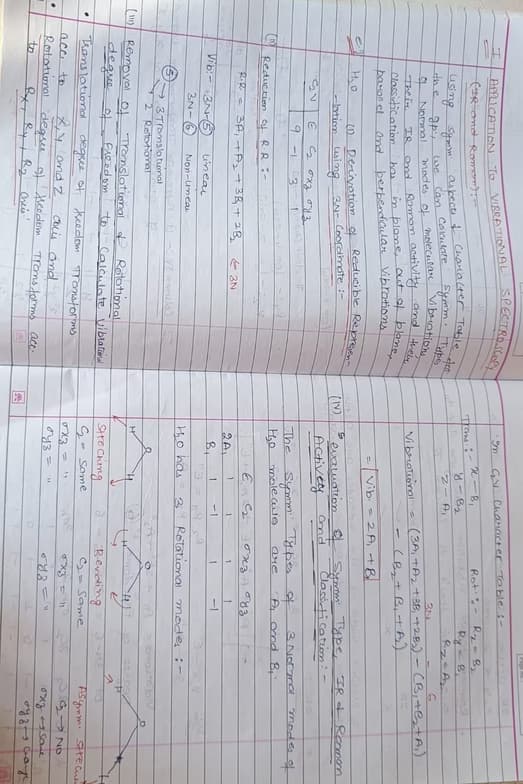 I APPLICATION TO VIBRATIONAL SPECTROSCOPY
(IR and Raman) :-
Using symm aspects & character Table for
the gp., we can calculate symm. Types
of Normal modes of molecular vibrations,
Their IR and Raman activity and their
classification has in plane, out of plane,
parallel and perpendicular vibrations.
eg H2O (i) Derivation of Reducible Represen-
-tation using 3N-coordinate :-
C2V | E C2 σxz σyz
9 -1 3 1
(ii) Reduction of R.R :-
R.R = 3A1 + A2 + 3B1 + 2B2 ← 3N
Vib:- 3N-5 Linear
3N-6 Non-linear
5 → 3 Translational
2 Rotational
(iii) Removal of Translational & Rotational
degree of freedom to calculate vibrational
• Translational degree of freedom transforms
acc. to X, Y and Z axis and
• Rotational degree of freedom Transforms acc.
to Rx, Ry, Rz axis
In C2V Character table :-
Trans :- x - B1 Rot :- Rx = B2
y - B2 Ry = B1
z - A1 Rz = A2
3N - 6
Vibrational = (3A1 + A2 + 3B1 + 2B2) - (B1 + B2 + A1)
- (B2 + B1 + A2)
= Vib = 2A1 + B1
(iv) evaluation of Symm Type, IR & Raman
Activity and Classification :-
The symm Types of 3 Normal modes of
H2O molecule are A1 and B1
E C2 σxz σyz
2A1 1 1 1 1
B1 1 -1 1 -1
H2O has 3 Rotational modes :-
O O O
H H H H H H
Streching Bending Asymm. strechi
C2 = Same C2 = Same C2 → No
σxz = " σxz = " σxz → Same
σyz = " σyz = "